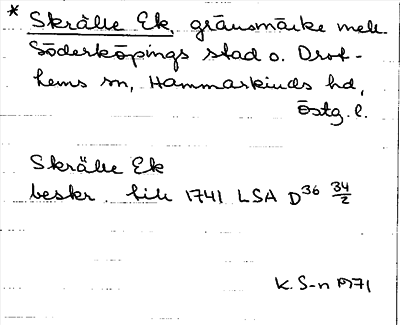 * Skrälle Ek, gränsmärke mell.
Söderköpings stad o. Drot-
hems sn, Hammarkinds hd,
Östg. l.
Skrälle Ek
beskr. till 1741 LSA D36 34/2
K. S-n 1971